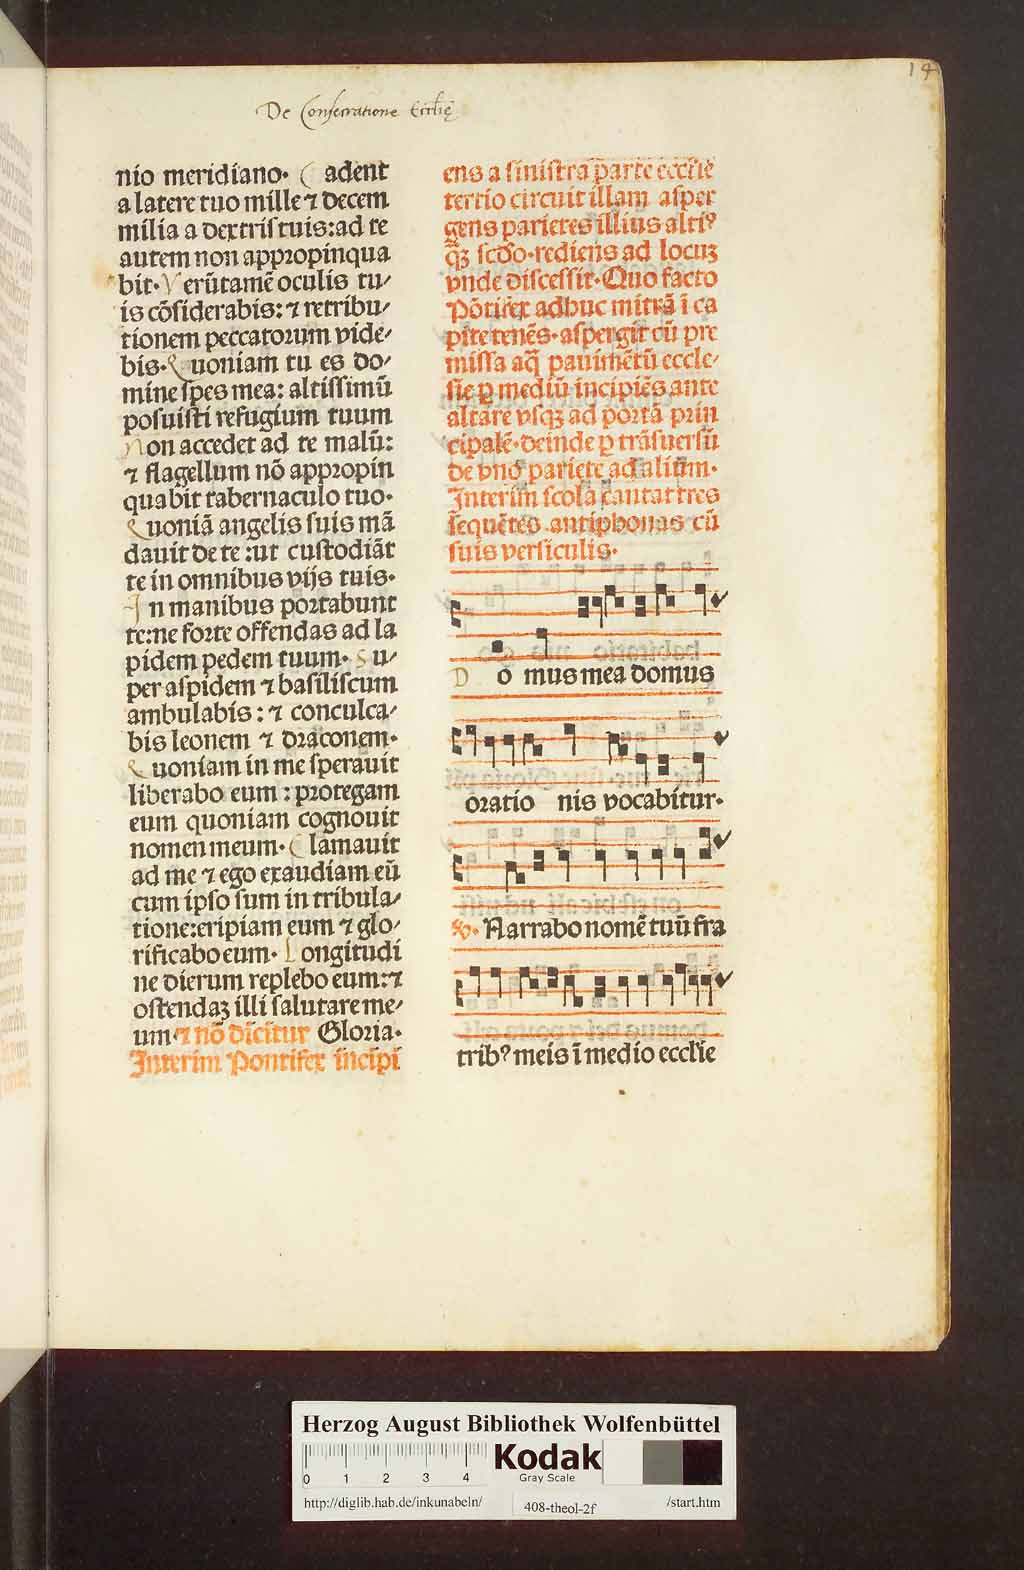 14
De Consecratione Eccl̄ie
nio meridiano· Cadent
a latere tuo mille ⁊ decem
milia a dextris tuis:ad te
autem non appropinqua
bit· Verūtamē oculis tu/
is cōsiderabis: ⁊ retribu/
tionem peccatorum vide/
bis· Quoniam tu es do/
mine spes mea: altissimū
posuisti refugium tuum
Non accedet ad te malū:
⁊ flagellum nō appropin
quabit tabernaculo tuo·
Quoniā angelis suis mā
dauit de te :ut custodiāt
te in omnibus vijs tuis·
In manibus portabunt
te:ne forte offendas ad la
pidem pedem tuum· Su/
per aspidem ⁊ basiliscum
ambulabis: ⁊ conculca/
bis leonem ⁊ draconem·
Quoniam in me sperauit
liberabo eum : protegam
eum quoniam cognouit
nomen meum· Clamauit
ad me ⁊ ego exaudiam eū
cum ipso sum in tribula/
tione:eripiam eum ⁊ glo/
rificabo eum· Longitudi
ne dierum replebo eum:⁊
ostendaꝫ illi salutare me/
um·⁊ nō dīcitur Gloria·
Interim Pontifex incipi
ens a sinistra parte eccl̄ie
tertio circuit illam asper
gens parietes illius altiꝰ
q̄ꝫ scd̄o·rediens ad locuꝫ
vnde discessit·Quo facto
Pōtifex adhuc mitrā ī ca
pite tenēs·aspergit cū pre
missa aq̄ pauimētū eccle/
sie ꝑ mediū incipiēs ante
altare vsqꝫ ad portā prin
cipalē·deinde ꝑ trāsuersū
de vno pariete ad alium·
Interim scola cantat tres
sequētes antiphonas cū
suis versiculis·
Do mus mea domus
oratio nis vocabitur·
℣· Narrabo nomē tuū fra
tribꝰ meis ī medio eccl̄ie
Herzog August Bibliothek Wolfenbüttel
0 1 2 3 4
Kodak
Gray Scale
http://diglib.hab.de/inkunabeln/ 408-theol-2f /start.htm